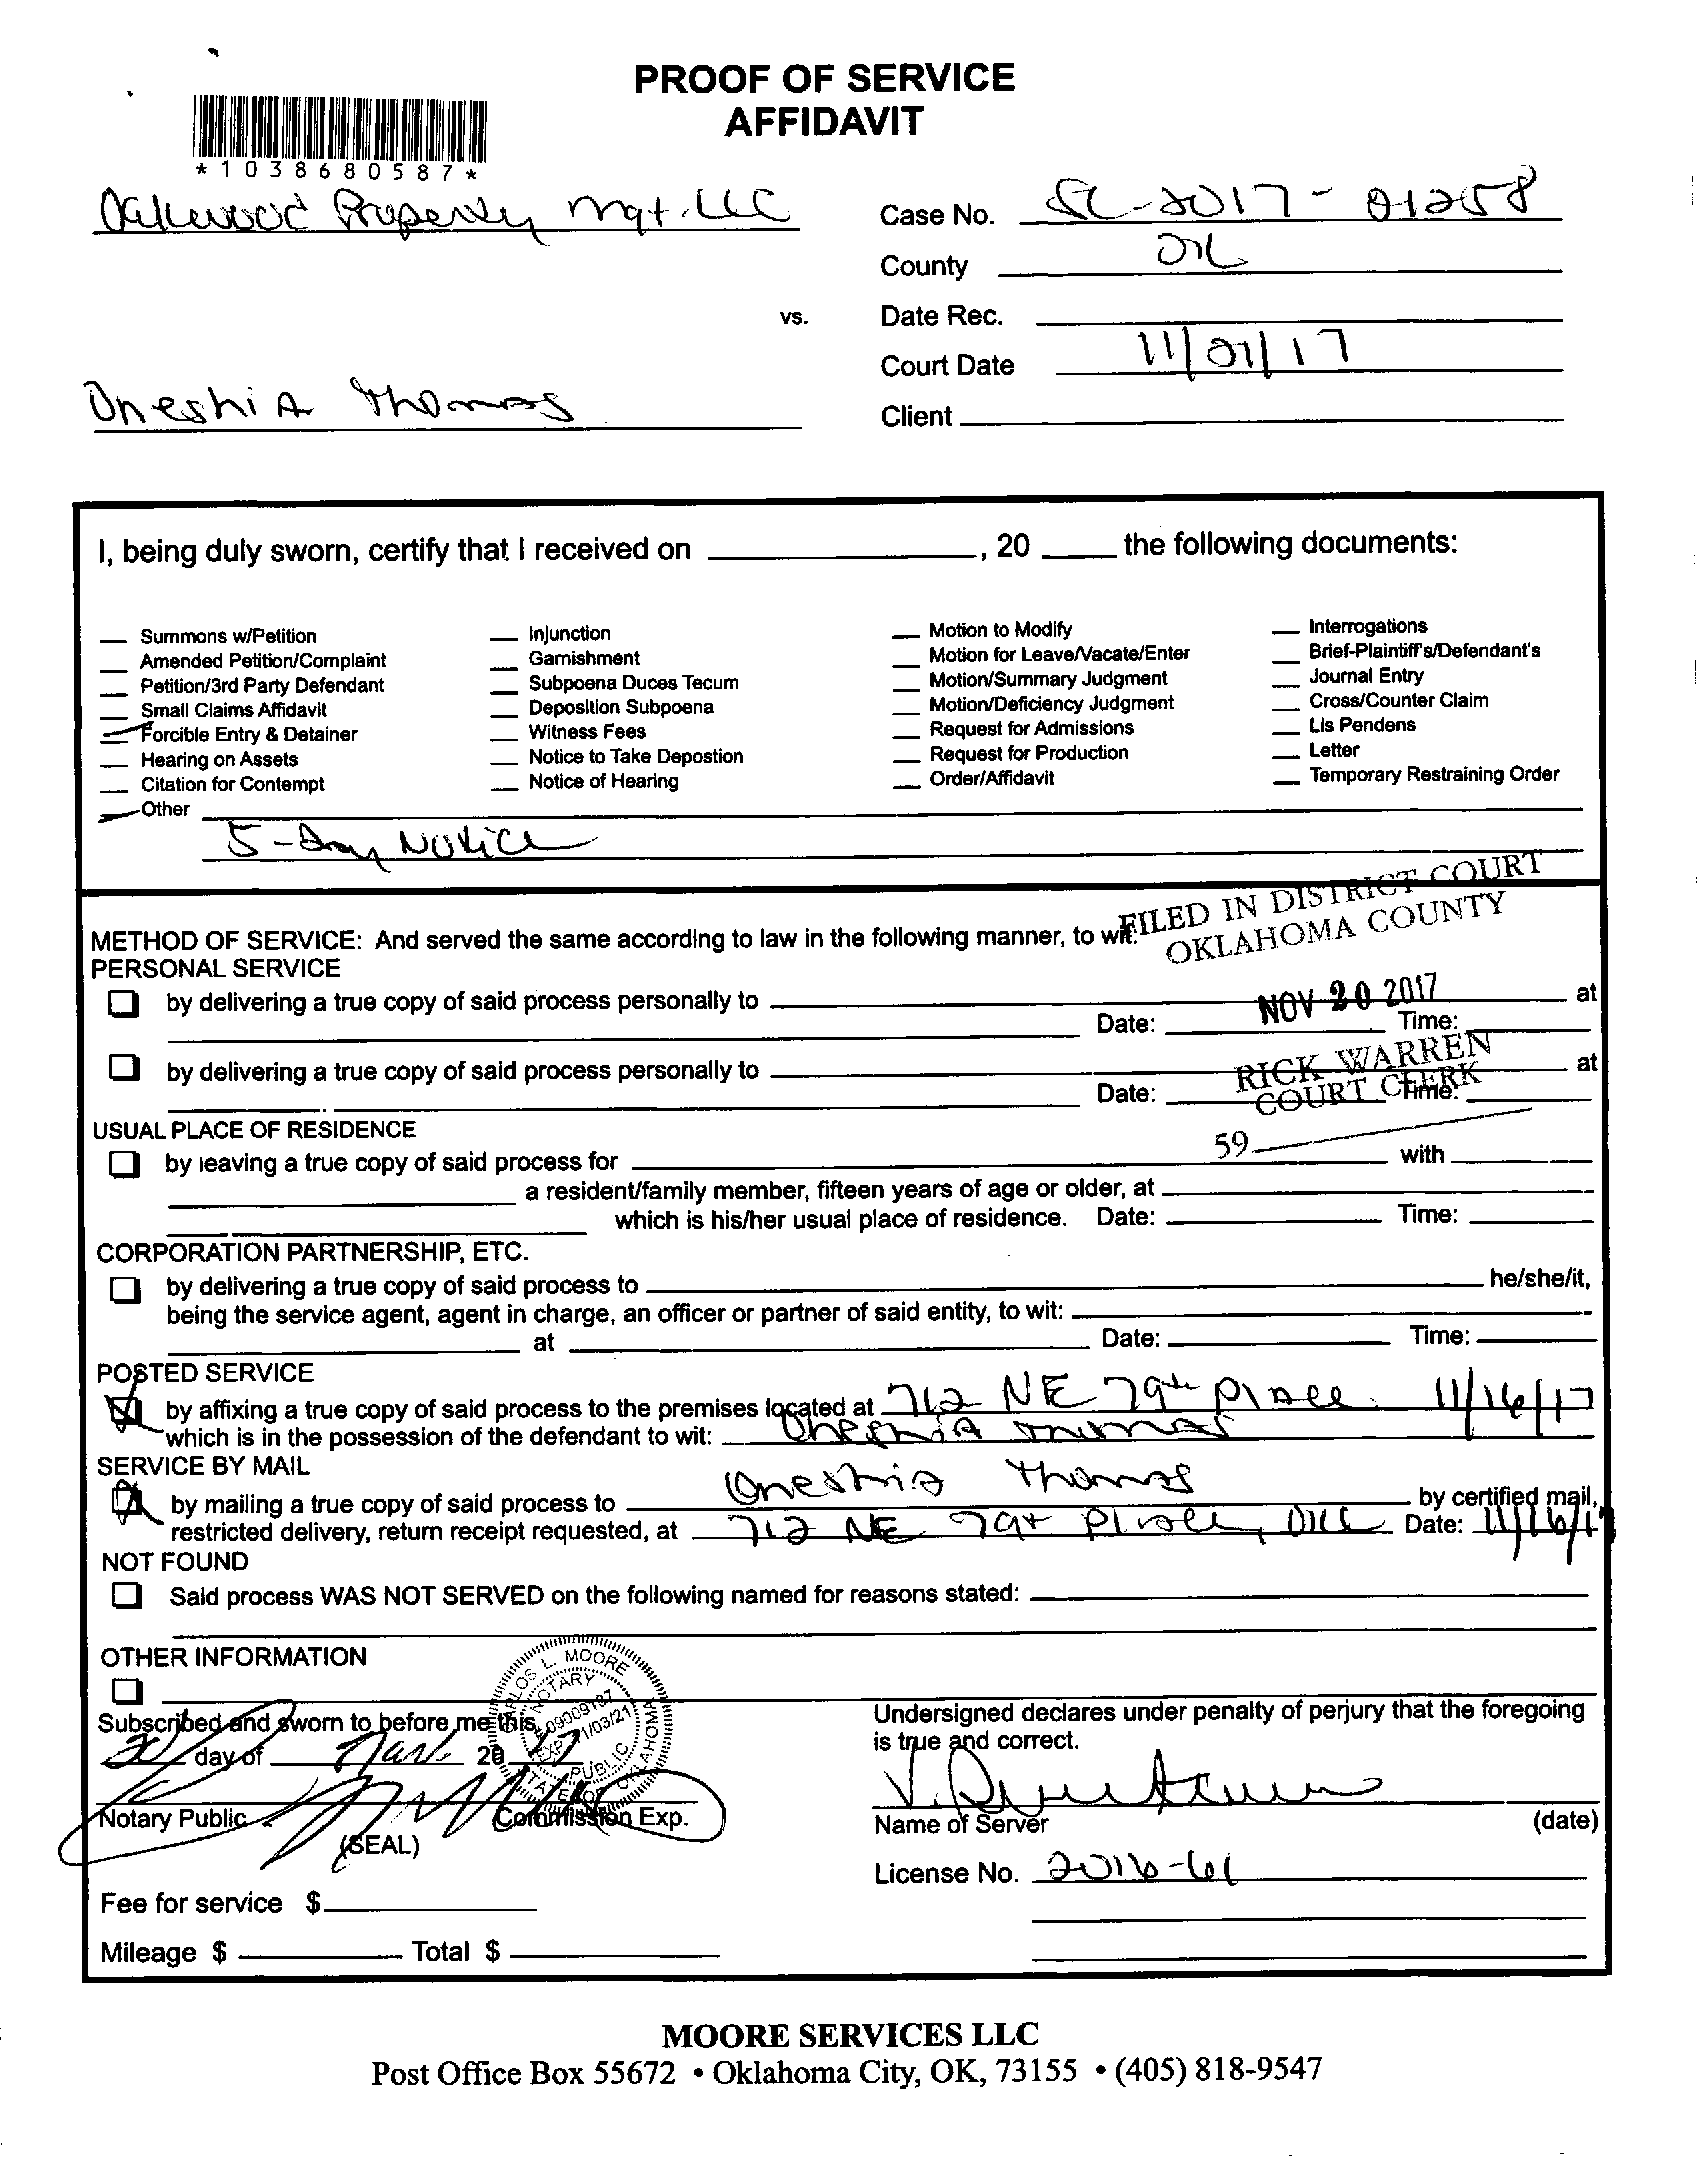 PROOF OF SERVICE
AFFIDAVIT
*1038680587*
Oakwood Property Mgt. LLC
Case No. SC-2017-01258
County OK
vs.
Date Rec.
Court Date 11/01/17
Oneshia Thomas
Client
I, being duly sworn, certify that I received on , 20 the following documents:
Summons w/Petition
Amended Petition/Complaint
Petition/3rd Party Defendant
Small Claims Affidavit
Forcible Entry & Detainer
Hearing on Assets
Citation for Contempt
Other
5-Day Notice
Injunction
Garnishment
Subpoena Duces Tecum
Deposition Subpoena
Witness Fees
Notice to Take Depostion
Notice of Hearing
Motion to Modify
Motion for Leave/Vacate/Enter
Motion/Summary Judgment
Motion/Deficiency Judgment
Request for Admissions
Request for Production
Order/Affidavit
Interrogations
Brief-Plaintiff's/Defendant's
Journal Entry
Cross/Counter Claim
Lis Pendens
Letter
Temporary Restraining Order
FILED IN DISTRICT COURT
OKLAHOMA COUNTY
NOV 20 2017
RICK WARREN
COURT CLERK
59
METHOD OF SERVICE: And served the same according to law in the following manner, to wit:
PERSONAL SERVICE
by delivering a true copy of said process personally to at
Date: Time:
by delivering a true copy of said process personally to at
Date: Time:
USUAL PLACE OF RESIDENCE
by leaving a true copy of said process for with
a resident/family member, fifteen years of age or older, at
which is his/her usual place of residence. Date: Time:
CORPORATION PARTNERSHIP, ETC.
by delivering a true copy of said process to he/she/it,
being the service agent, agent in charge, an officer or partner of said entity, to wit:
at Date: Time:
POSTED SERVICE
by affixing a true copy of said process to the premises located at 712 NE 79th Place 11/16/17
which is in the possession of the defendant to wit: Oneshia Thomas
SERVICE BY MAIL
by mailing a true copy of said process to Oneshia Thomas by certified mail,
restricted delivery, return receipt requested, at 712 NE 79th Place, OKC Date: 11/16/17
NOT FOUND
Said process WAS NOT SERVED on the following named for reasons stated:
OTHER INFORMATION
Subscribed and sworn to before me this
20 day of Nov. 20 17
Notary Public Commission Exp.
(SEAL)
L. MOORE
NOTARY
PUBLIC
STATE OF OKLAHOMA
EXP.
Fee for service $
Mileage $ Total $
Undersigned declares under penalty of perjury that the foregoing
is true and correct.
Name of Server (date)
License No. 2016-61
MOORE SERVICES LLC
Post Office Box 55672 • Oklahoma City, OK, 73155 • (405) 818-9547